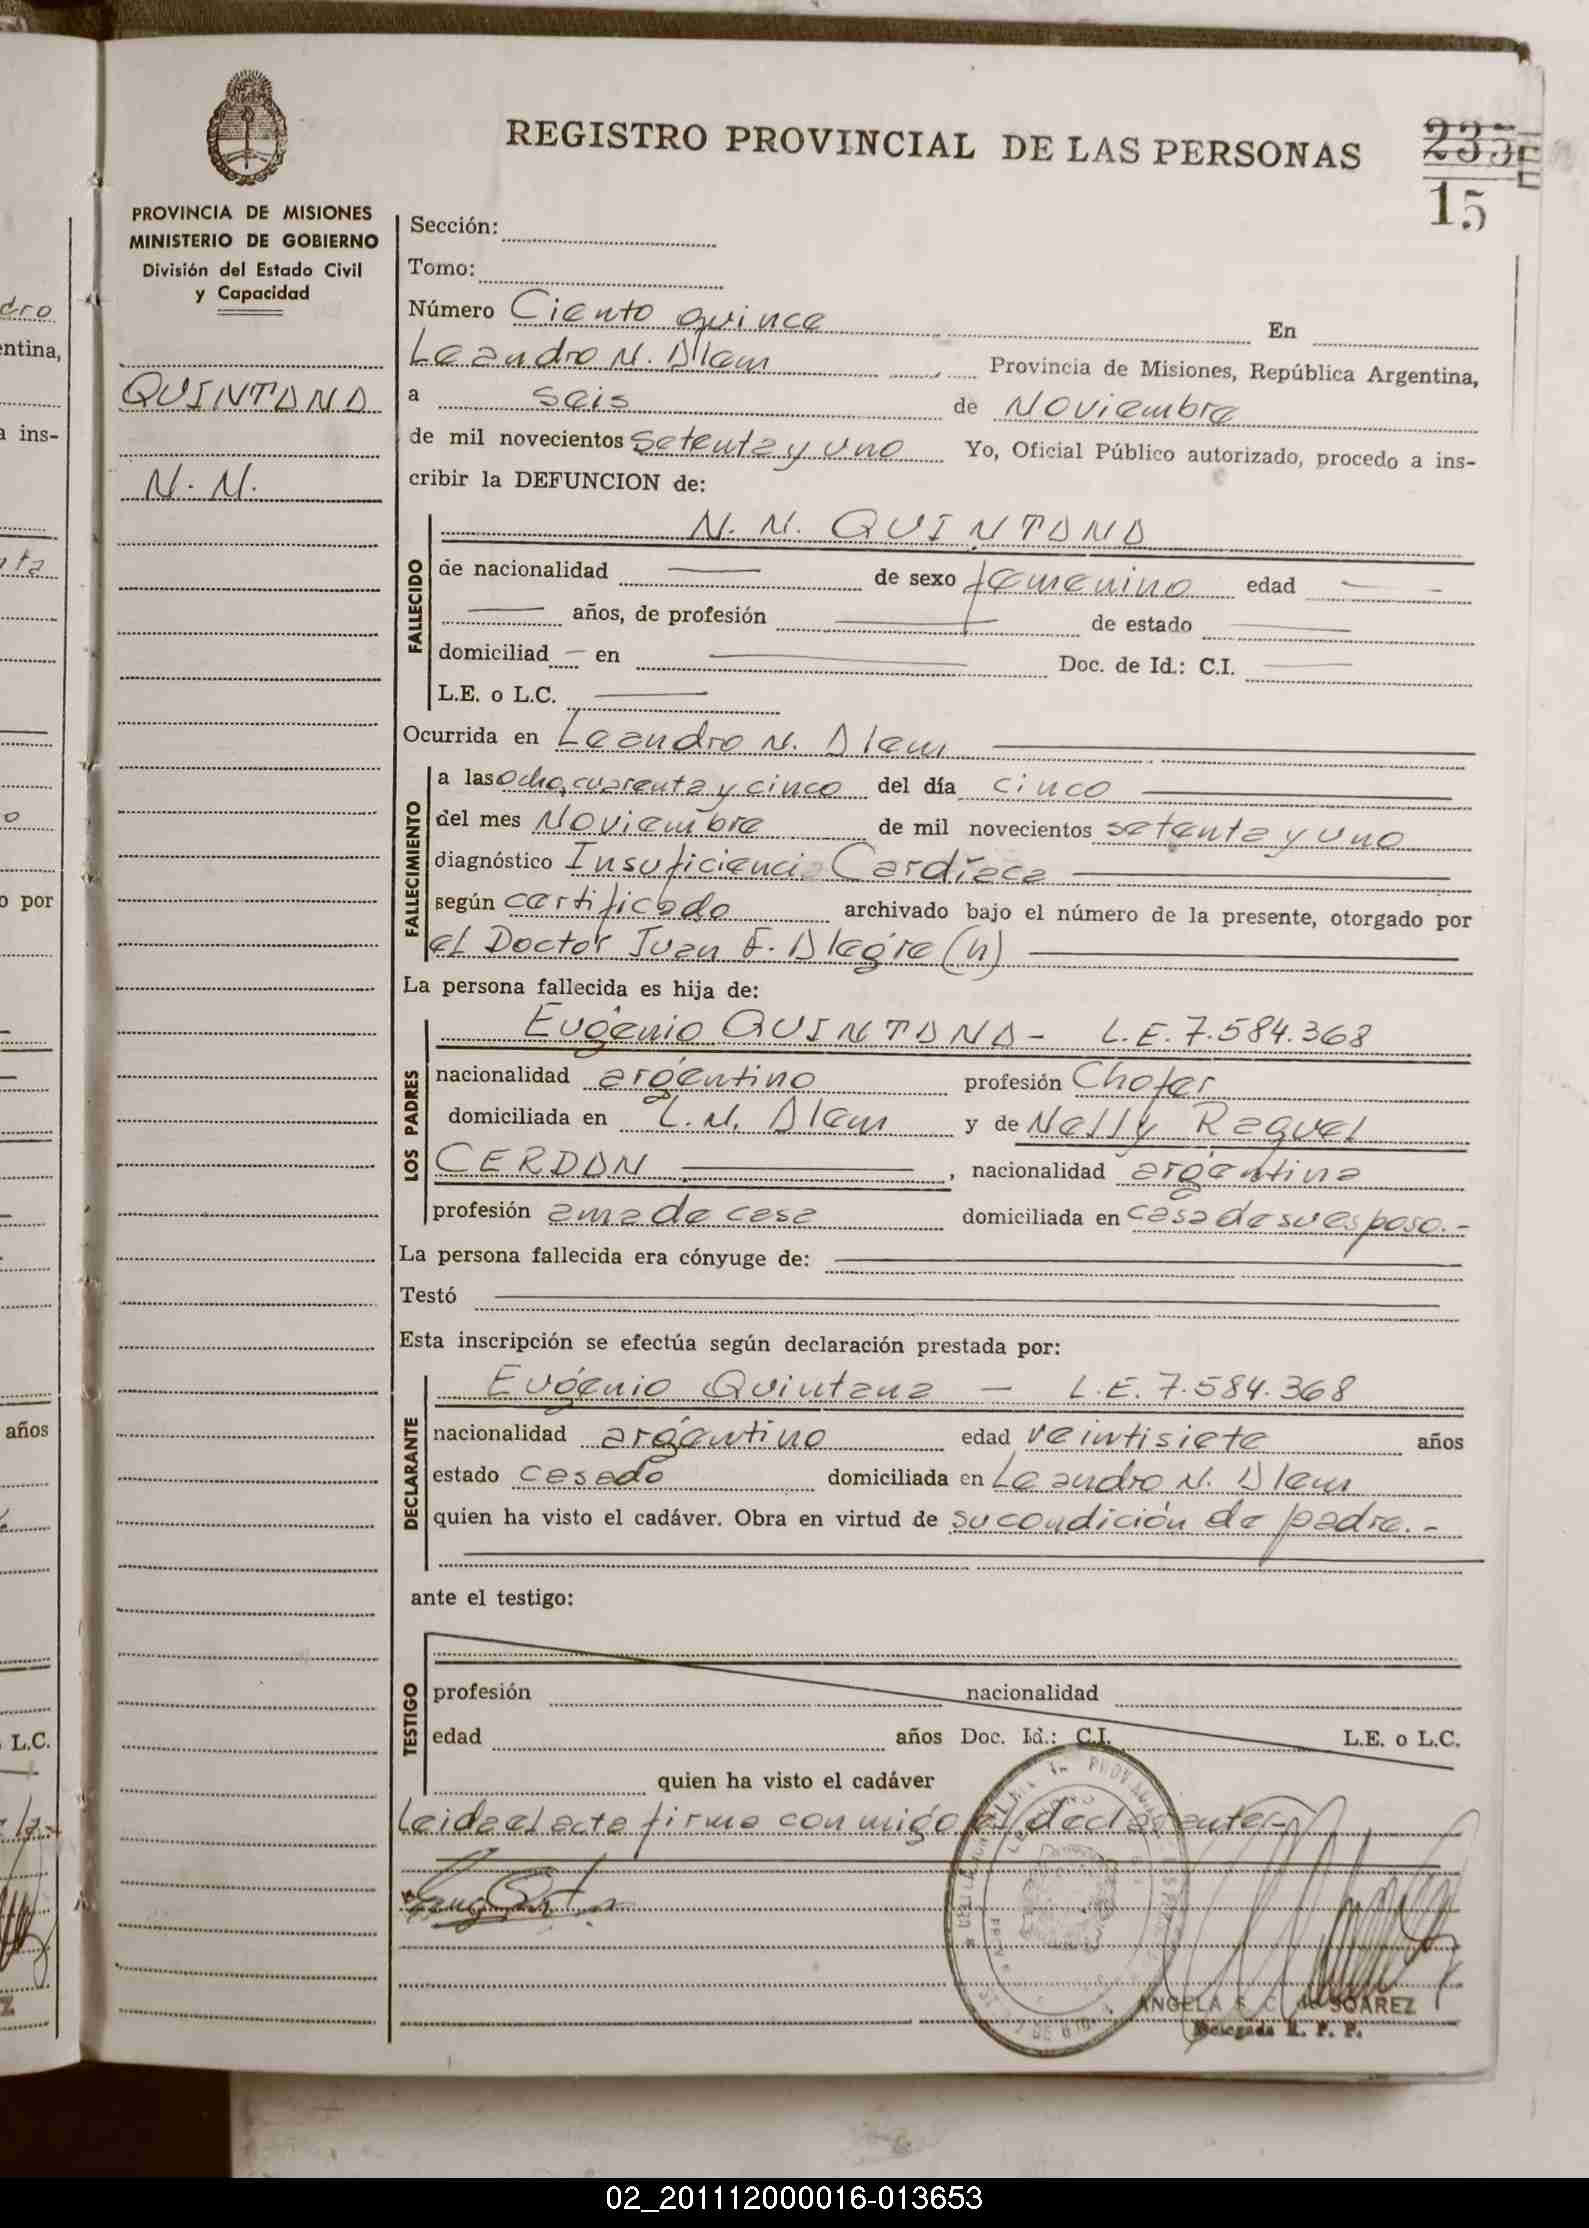 REGISTRO PROVINCIAL DE LAS PERSONAS
235
15
PROVINCIA DE MISIONES
MINISTERIO DE GOBIERNO
División del Estado Civil
y Capacidad
QUINTANA
N. N.
Sección:
Tomo:
Número Ciento quince En
Leandro N. Alem Provincia de Misiones, República Argentina,
a seis de Noviembre
de mil novecientos Setenta y uno Yo, Oficial Público autorizado, procedo a ins-
cribir la DEFUNCION de:
FALLECIDO
N. N. QUINTANA
de nacionalidad — de sexo femenino edad —
— años, de profesión — de estado —
domiciliad — en — Doc. de Id.: C.I. —
L.E. o L.C. —
Ocurrida en Leandro N. Alem
FALLECIMIENTO
a las ocho, cuarenta y cinco del día cinco
del mes Noviembre de mil novecientos setenta y uno
diagnóstico Insuficiencia Cardíaca
según certificado archivado bajo el número de la presente, otorgado por
el Doctor Juan F. Alegre (h)
La persona fallecida es hija de:
LOS PADRES
Eugenio QUINTANA - L.E. 7.584.368
nacionalidad argentino profesión Chofer
domiciliada en L. N. Alem y de Nelly Raquel
CERDAN , nacionalidad argentina
profesión ama de casa domiciliada en casa de su esposo.-
La persona fallecida era cónyuge de:
Testó
Esta inscripción se efectúa según declaración prestada por:
DECLARANTE
Eugenio Quintana - L.E. 7.584.368
nacionalidad argentino edad veintisiete años
estado casado domiciliada en Leandro N. Alem
quien ha visto el cadáver. Obra en virtud de su condición de padre.-
ante el testigo:
TESTIGO
profesión nacionalidad
edad años Doc. Id.: C.I. L.E. o L.C.
quien ha visto el cadáver
Leida el acta firma conmigo el declarante.-
ANGELA de SOAREZ
Delegada R. P. P.
dro
ntina,
a ins-
nta
o
o por
años
L.C.
02_201112000016-013653